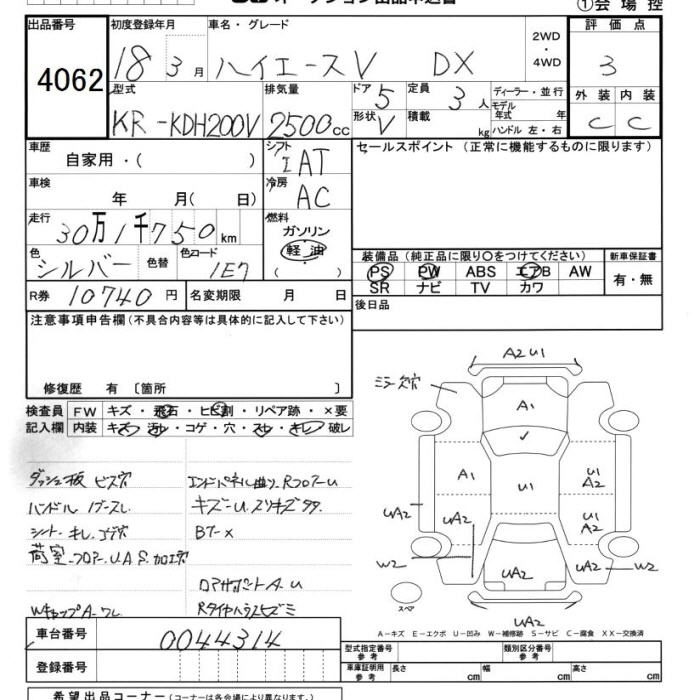 ①会場控
出品番号 4062
初度登録年月 18 3月
車名・グレード ハイエースV DX
2WD・4WD
評価点 3
型式 KR-KDH200V
排気量 2500cc
ドア 5
形状 V
定員 3人
積載 kg
ディーラー・並行
モデル年式 年
ハンドル 左・右
外装 C
内装 C
車歴 自家用・( )
シフト I AT
セールスポイント (正常に機能するものに限ります)
車検 年 月( 日)
冷房 AC
走行 30万1千750km
燃料 ガソリン
軽油
( )
色 シルバー 色替
色コード 1E7
装備品 (純正品に限り○をつけてください)
新車保証書 有・無
PS PW ABS エアB AW
SR ナビ TV カワ
R券 10740円
名変期限 月 日
後日品
注意事項申告欄 (不具合内容等は具体的に記入して下さい)
修復歴 有 〔箇所 〕
検査員 FW キズ・飛石・ヒビ割・リペア跡・×要
記入欄 内装 キズ・汚レ・コゲ・穴・スレ・キレ・破レ
ダッシュ板 ビス穴
エンドパネル曲リ・RフロアーU
ハンドル
キズー U. スリキズ 多々
シートー キレ. コゲ穴
BTーX
荷室ーフロアー. U.A.S. 加工穴
WキャップA.ワレ
Rタイヤハウスヒズミ
車台番号 0044314
登録番号
希望出品コーナー (コーナーは各会場により異なります。)
A2 U1
ミラー欠穴
A1
A1
U1
U1 A2
UA2
UA2
U1 A2
W2
UA2
UA2
W2
スペア
UA2
A-キズ E-エクボ U-凹み W-補修跡 S-サビ C-腐食 XX-交換済
型式指定番号 参考
類別区分番号 参考
車庫証明用 参考
長さ cm
幅 cm
高さ cm